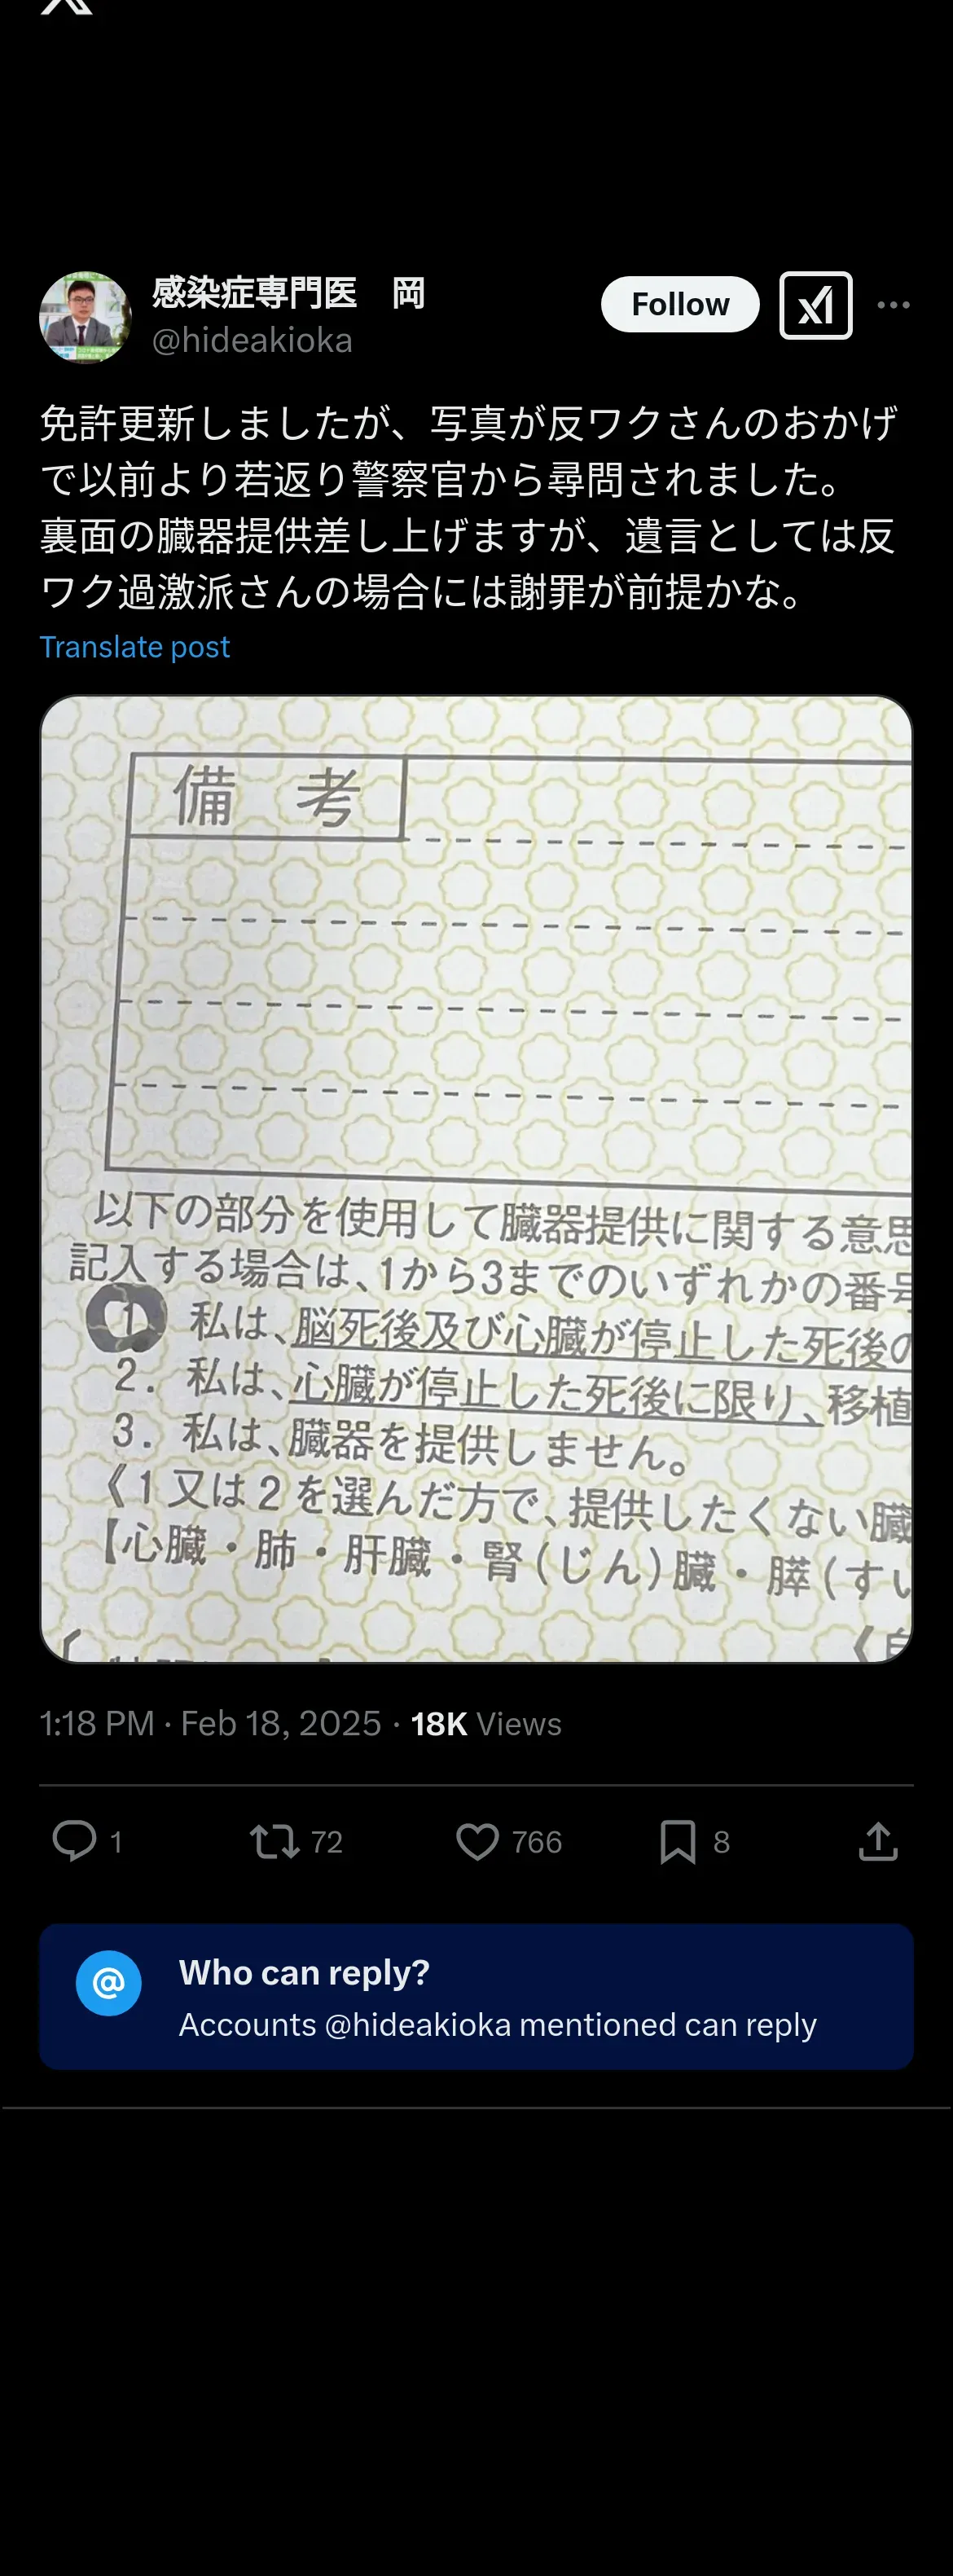 感染症専門医　岡
@hideakioka
Follow
免許更新しましたが、写真が反ワクさんのおかげ
で以前より若返り警察官から尋問されました。
裏面の臓器提供差し上げますが、遺言としては反
ワク過激派さんの場合には謝罪が前提かな。
Translate post
備考
以下の部分を使用して臓器提供に関する意思
記入する場合は、1から3までのいずれかの番号
1 私は、脳死後及び心臓が停止した死後の
2. 私は、心臓が停止した死後に限り、移植
3. 私は、臓器を提供しません。
《1又は2を選んだ方で、提供したくない臓
【心臓・肺・肝臓・腎(じん)臓・膵(すい
1:18 PM · Feb 18, 2025 · 18K Views
1 72 766 8
@
Who can reply?
Accounts @hideakioka mentioned can reply